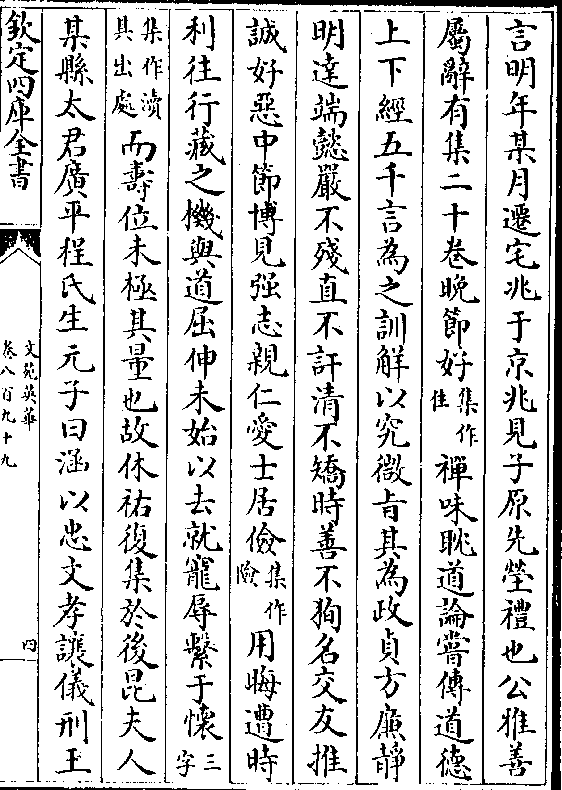 言明年某月遷宅兆于京兆見子原先塋禮也公雅善
屬辭有集二十卷晚節好集作佳禪味耽道論嘗傳道德
上下經五千言為之訓解以究微旨其為政貞方廉靜
明達端懿嚴不殘直不訐清不矯時善不狥名交友推
誠好惡中節博見强志親仁愛士居儉集作險用晦遭時
利往行藏之機與道屈伸未始以去就寵辱繫于懷三字
集作瀆具出處而壽位未極其量也故休祐復集於後昆夫人
某縣太君廣平程氏生元子曰涵以忠文孝讓儀刑王
欽定四庫全書
文苑英華
卷八百九十九
四